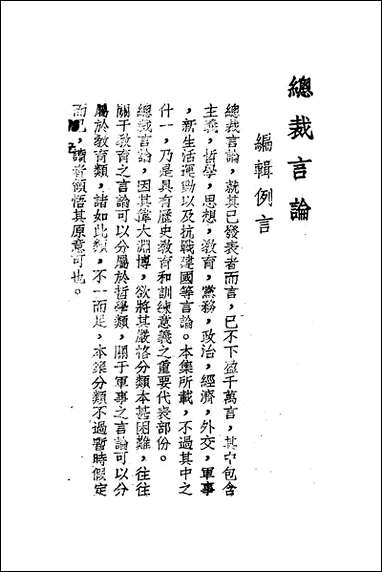 總裁言論
編輯例言
總裁言論，就其已發表者而言，已不下盈千萬言，其中包含
主義，哲學，思想，教育，黨務，政治，經濟，外交，軍事
，新生活運動以及抗戰建國等言論。本集所載，不過其中之
什一，乃是具有歷史教育和訓練意義之重要代表部份。
總裁言論，因其偉大淵博，欲將其嚴格分類本甚困難，往往
關于教育之言論可以分屬於哲學類，關于軍事之言論可以分
屬於教育類，諸如此類，不一而足，本集分類不過暫時假定
而已，讀者領悟其原意可也。